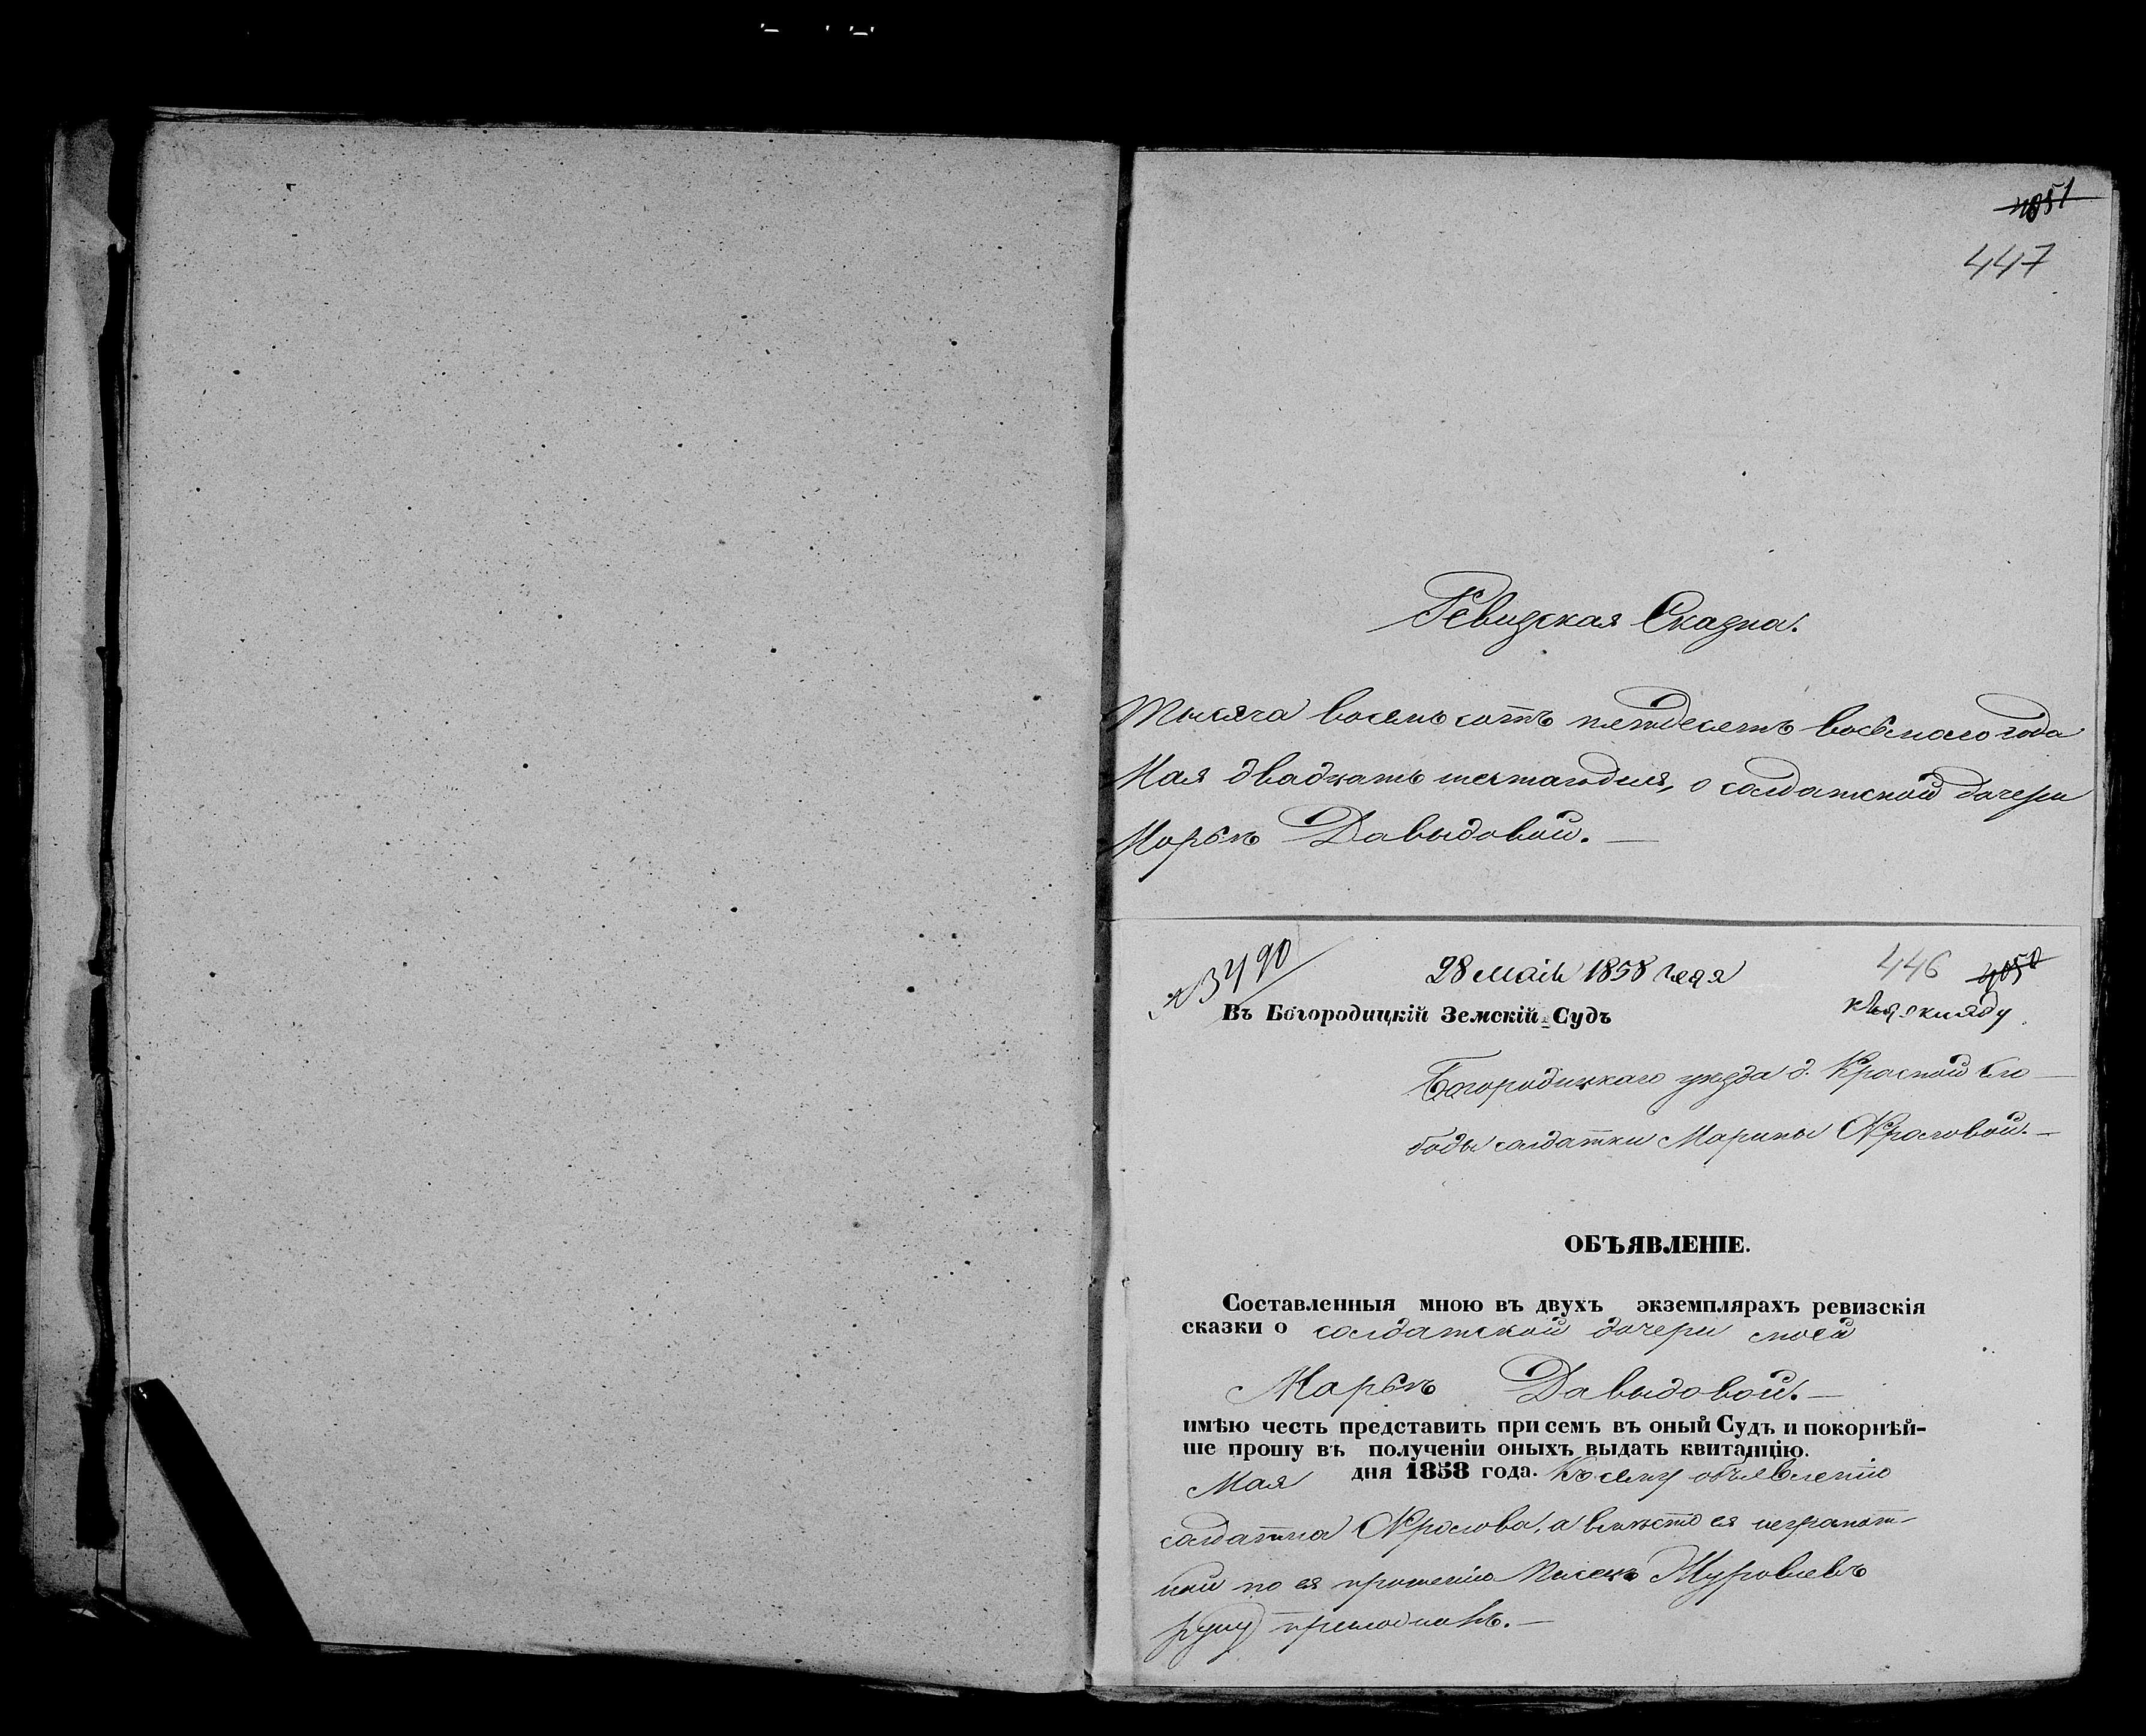 1051
447
Ревизская Сказка.
Тысяча восемьсотъ пятдесятъ восьмаго года
Мая двадцать шестаго дня, о солдатской дочери
Марьѣ Давыдовой.—
№ 3490
28 маія 1858 года
446 1050
Въ Богородицкій Земскій Судъ
Богородицкаго уѣзда д. Красной Сло-
боды солдатки Марины Фроловой.—
ОБЪЯВЛЕНІЕ.
Составленныя мною въ двухъ экземплярахъ ревизскія
сказки о солдатской дочери моей
Марьѣ Давыдовой.—
имѣю честь представить при семъ въ оный Судъ и покорнѣй-
ше прошу въ полученіи оныхъ выдать квитанцію.
Мая дня 1858 года. Къ сему объявленію
солдатка Фролова, а вмѣсто ея неграмот-
ной по ея прошенію Муровлевъ
руку приложилъ.—